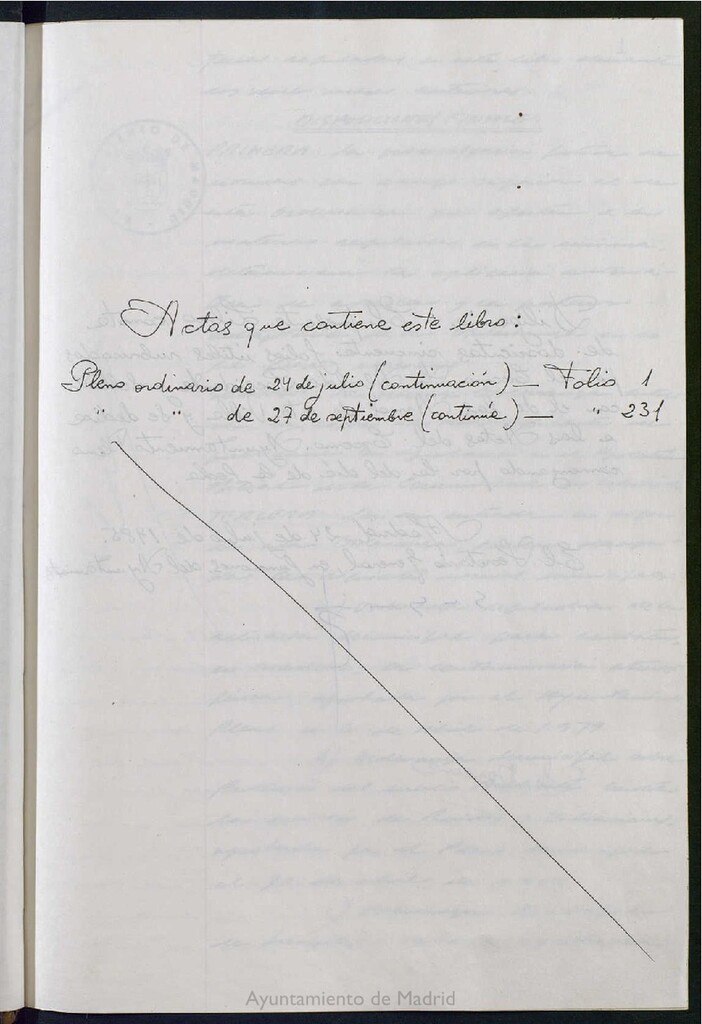 Actas que contiene este libro:
Pleno ordinario de 24 de julio (continuación) — Folio 1
" " de 27 de septiembre (continúa) — " 231
Ayuntamiento de Madrid